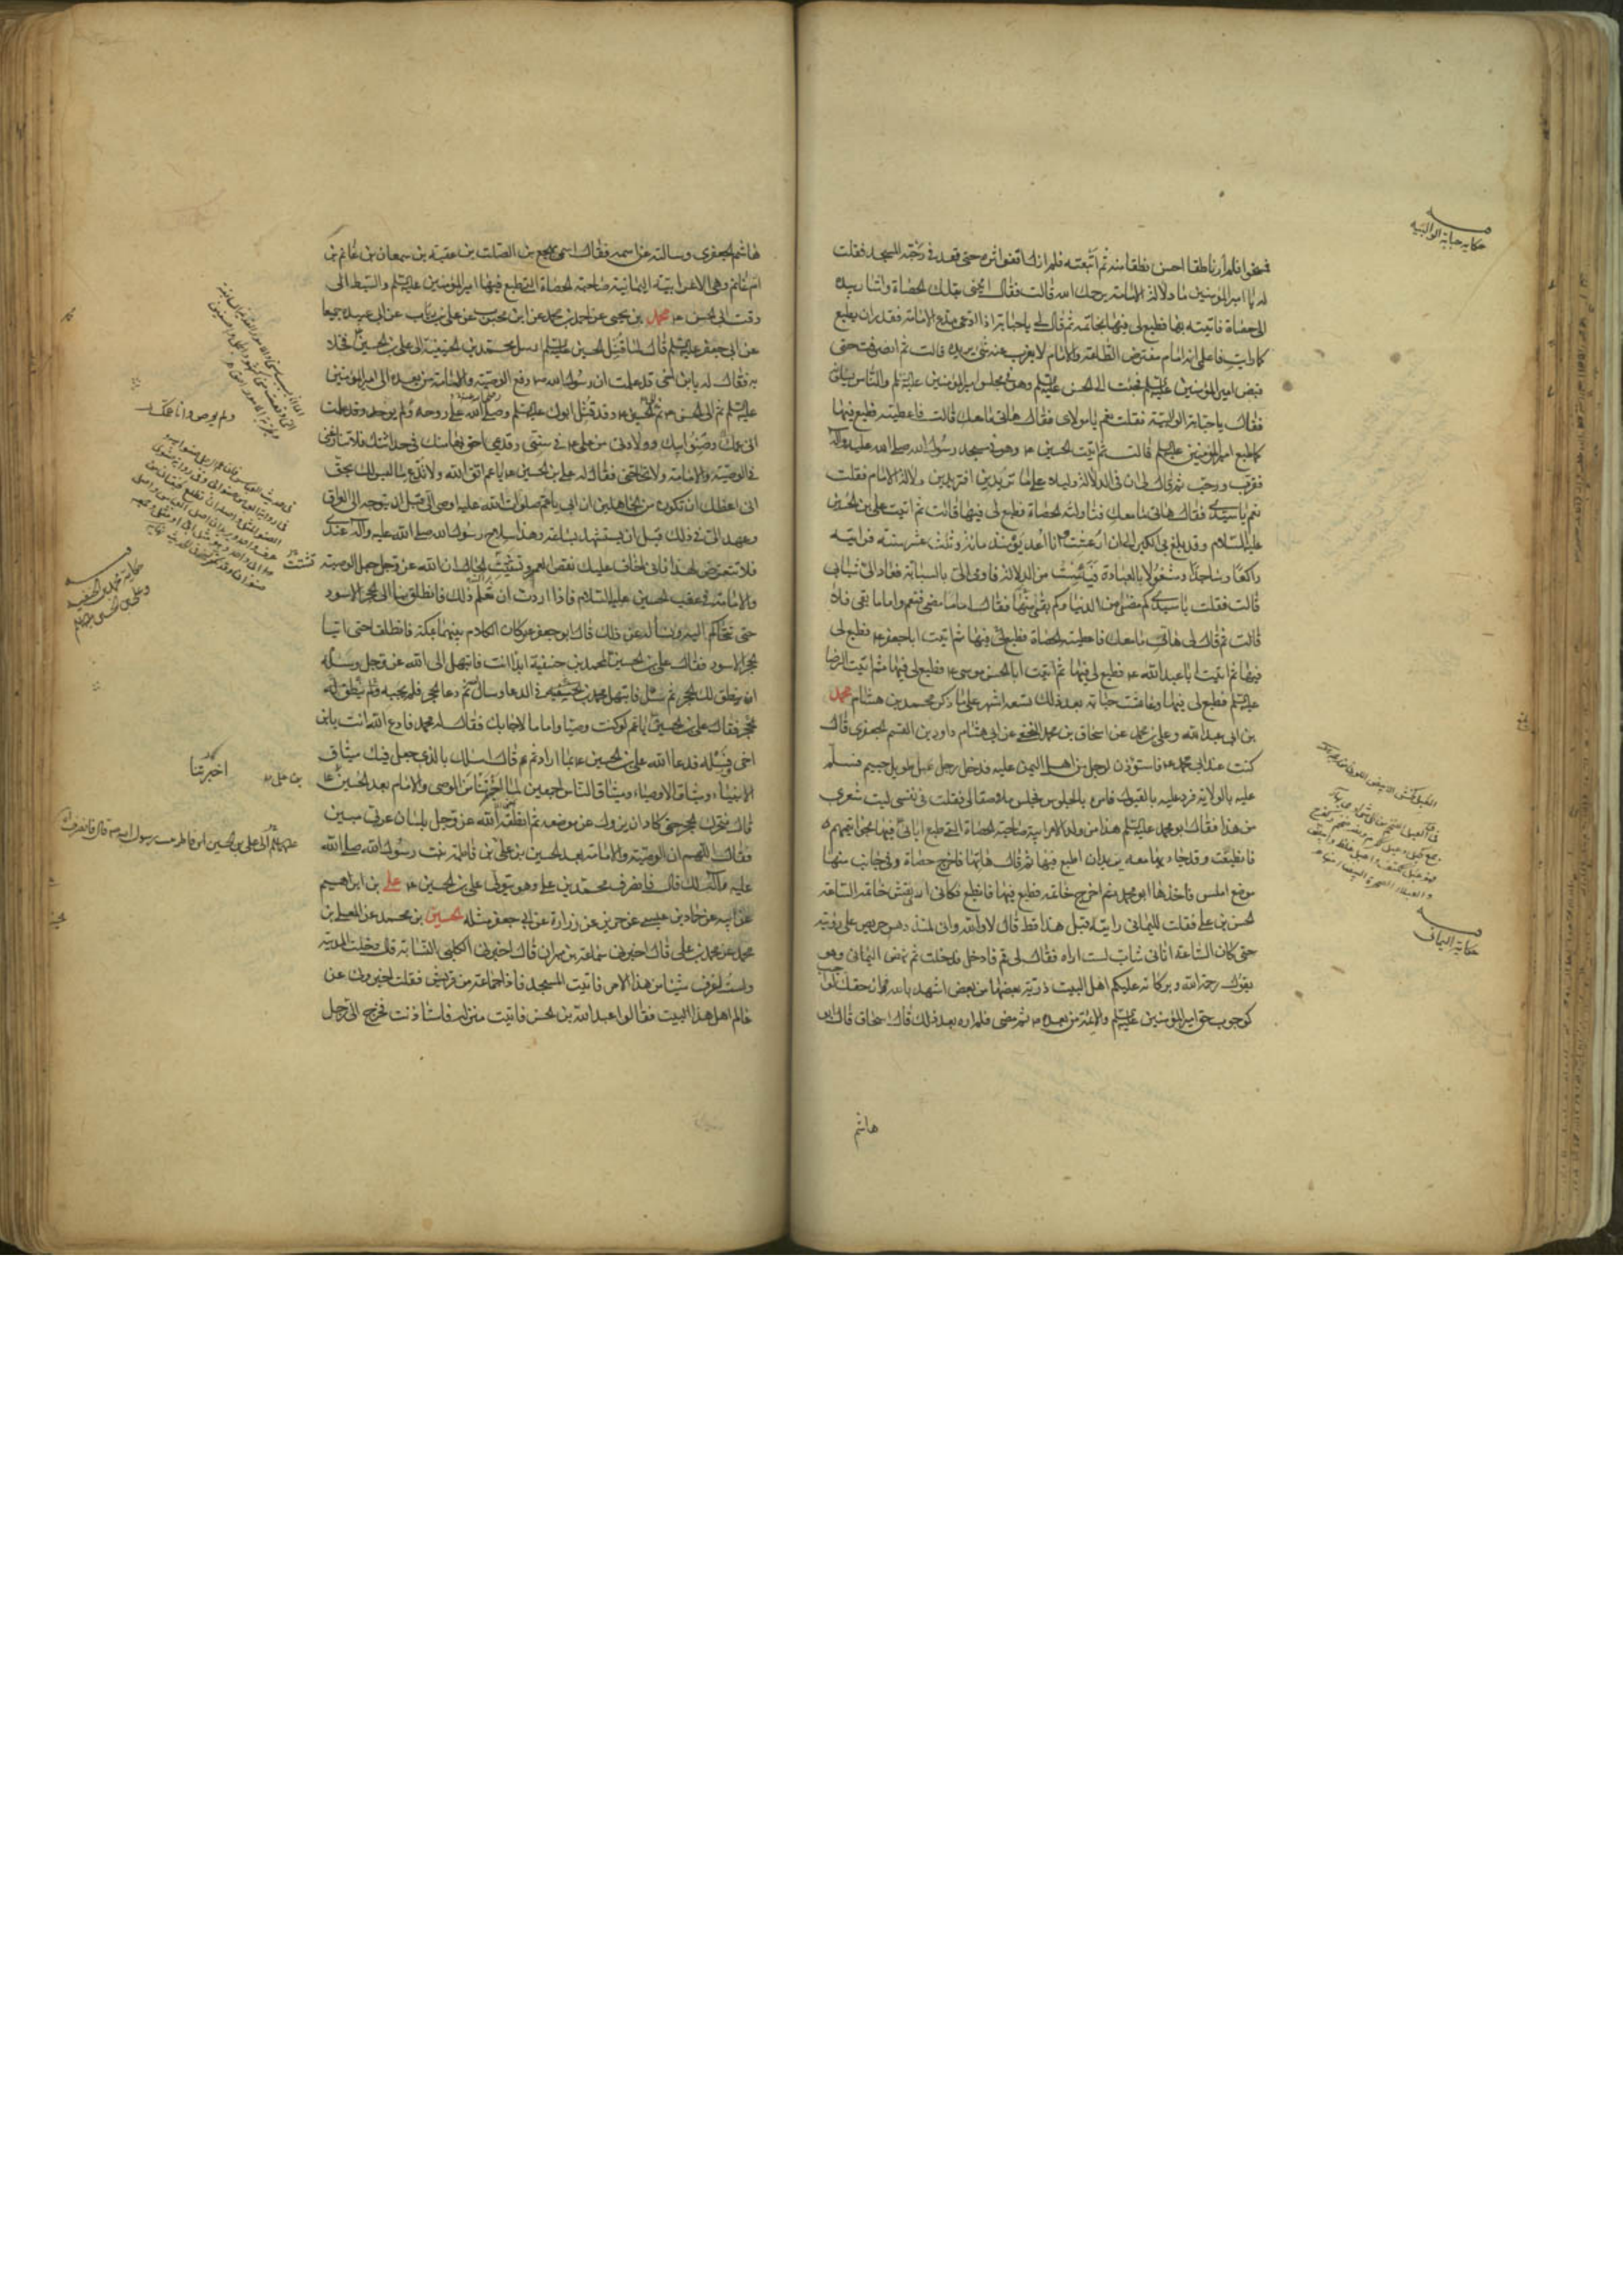 حكاية حبابة الوالبية
فمسخوا فلم أر ناطقا احسن نطقا منه ثم اتبعته فلم ازل اقفو اثره حتى قعد في رحبة المسجد فقلت
له يا امير المؤمنين ما دلالة الامامة يرحمك الله قالت فقال ايتيني بتلك الحصاة واشار بيده
الى حصاة فاتيته بها فطبع لي فيها بخاتمه ثم قال لي يا حبابة اذا ادعى مدع الامامة فقدر ان يطبع
كما رايت فاعلمي انه امام مفترض الطاعة والامام لا يعزب عنه شيء يريده قالت ثم انصرفت حتى
قبض امير المؤمنين عليه السلم فجئت الى الحسن عليه السلم وهو في مجلس امير المؤمنين عليه السلم والناس يسألونه
فقال يا حبابة الوالبية فقلت نعم يا مولاي فقال هاتي ما معك قالت فاعطيته فطبع فيها
كما طبع امير المؤمنين عليه السلم قالت ثم اتيت الحسين ع وهو في مسجد رسول الله صلى الله عليه وآله
فقرب ورحب ثم قال لي ان في الدلالة دليلا على ما تريدين افتريدين دلالة الامامة فقلت
نعم يا سيدي فقال هاتي ما معك فناولته الحصاة فطبع لي فيها قالت ثم اتيت علي بن الحسين
عليه السلام وقد بلغ بي الكبر الى ان ارعشت وانا اعد يومئذ مائة وثلث عشر سنة فرايته
راكعا وساجدا ومشغولا بالعبادة فيئست من الدلالة فاومى الي بالسبابة فعاد الي شبابي
قالت فقلت يا سيدي كم مضى من الدنيا وكم بقي منها فقال اما ما مضى فنعم واما ما بقي فلا
قالت ثم قال لي هاتي ما معك فاعطيته الحصاة فطبع لي فيها ثم اتيت ابا جعفر ع فطبع لي
فيها ثم اتيت ابا عبد الله ع فطبع لي فيها ثم اتيت ابا الحسن موسى ع فطبع لي فيها ثم اتيت الرضا
عليه السلم فطبع لي فيها وعاشت حبابة بعد ذلك تسعة اشهر على ما ذكر محمد بن هشام محمد
بن ابي عبد الله وعلي بن محمد عن اسحاق بن محمد النخعي عن ابي هاشم داود بن القسم الجعفري قال
كنت عند ابي محمد ع فاستؤذن لرجل من اهل اليمن عليه فدخل رجل عبل طويل جسيم فسلم
عليه بالولاية فرد عليه بالقبول فامره بالجلوس فجلس ملاصقا لي فقلت في نفسي ليت شعري
من هذا فقال ابو محمد عليه السلم هذا من ولد الاعرابية صاحبة الحصاة التي طبع ابائي فيها بخواتيمهم
فانطبعت وقد جاء بها معه يريد ان اطبع فيها ثم قال هاتها فاخرج حصاة وفي جانب منها
موضع املس فاخذها ابو محمد ثم اخرج خاتمه فطبع فيها فانطبع فكاني ارى نقش خاتمه الساعة
الحسن بن علي فقلت لليماني رايته قبل هذا قط قال لا والله واني لمنذ دهر حريص على رؤيته
حتى كان الساعة اتاني شاب لست اراه فقال لي قم فادخل فدخلت ثم نهض اليماني وهو
يقول رحمة الله وبركاته عليكم اهل البيت ذرية بعضها من بعض اشهد بالله ان حقك لواجب
كوجوب حق امير المؤمنين عليه السلم والائمة من بعده ثم مضى فلم اره بعد ذلك قال اسحاق قال ابو
هاشم
حكاية اليماني
هاشم الجعفري وسالته عن اسمه فقال اسمي مهجع بن الصلت بن عقبة بن سمعان بن غانم بن
ام غانم وهي الاعرابية اليمانية صاحبة الحصاة التي طبع فيها امير المؤمنين عليه السلم والسبط الى
وقت ابي الحسن ع محمد بن يحيى عن احمد بن محمد عن ابن محبوب عن علي بن رئاب عن ابي عبيدة جميعا
عن ابي جعفر عليه السلم قال لما قتل الحسين عليه السلم ارسل محمد بن الحنفية الى علي بن الحسين فخلا
به فقال له يا بن اخي قد علمت ان رسول الله ص دفع الوصية والامامة من بعده الى امير المؤمنين
عليه السلم ثم الى الحسن ع ثم الحسين ع وقد قتل ابوك عليه السلم وصلى الله على روحه ولم يوص وقد علمت
اني عمك وصنو ابيك وولادتي من علي ع في سنني وقدمي احق بها منك في حداثتك فلا تنازعني
في الوصية والامامة ولا تحاجني فقال له علي بن الحسين ع يا عم اتق الله ولا تدع ما ليس لك بحق
اني اعظك ان تكون من الجاهلين ان ابي يا عم صلوات الله عليه اوصى الي قبل ان يتوجه الى العراق
وعهد الي في ذلك قبل ان يستشهد بساعة وهذا سلاح رسول الله صلى الله عليه وآله عندي
فلا تتعرض لهذا فاني اخاف عليك نقص العمر وتشتت الحال ان الله عز وجل جعل الوصية
والامامة في عقب الحسين عليه السلام فاذا اردت ان تعلم ذلك فانطلق بنا الى الحجر الاسود
حتى نتحاكم اليه ونساله عن ذلك قال ابو جعفر ع وكان الكلام بينهما بمكة فانطلقا حتى اتيا
الحجر الاسود فقال علي بن الحسين لمحمد بن حنفية ابدا انت فابتهل الى الله عز وجل وسله
ان ينطق لك الحجر ثم سل فابتهل محمد بن حنفية في الدعا وسال الله ثم دعا الحجر فلم يجبه ولم ينطق له
الحجر فقال علي بن الحسين يا عم لو كنت وصيا واماما لاجابك فقال له محمد فادع الله انت يا بن
اخي وسله فدعا الله علي بن الحسين ع بما اراد ثم قال اسالك بالذي جعل فيك ميثاق
الانبياء وميثاق الاوصياء وميثاق الناس اجمعين لما اخبرتنا من الوصي والامام بعد الحسين ع
قال فتحرك الحجر حتى كاد ان يزول عن موضعه ثم انطقه الله عز وجل بلسان عربي مبين
فقال اللهم ان الوصية والامامة بعد الحسين بن علي بن فاطمة بنت رسول الله صلى الله
عليه وآله لك قال فانصرف محمد بن علي وهو يتولى علي بن الحسين ع علي بن ابراهيم
عن ابيه عن حماد بن عيسى عن حريز عن زرارة عن ابي جعفر مثله الحسين بن محمد عن المعلى بن
محمد عن محمد بن علي قال اخبرني سماعة بن مهران قال اخبرني الكلبي النسابة قال دخلت المدينة
ولست اعرف شيئا من هذا الامر فاتيت المسجد فاذا جماعة من قريش فقلت اخبروني عن
عالم اهل هذا البيت فقالوا عبد الله بن الحسن فاتيت منزله فاستاذنت فخرج الي رجل
ولم يوص وانا عمك
حكاية محمد بن الحنفية
وعلي بن الحسين
اخبرتنا
بن علي ع